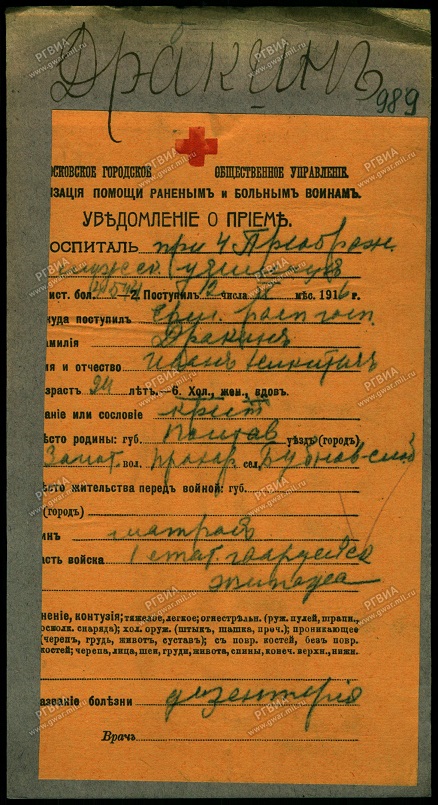 Дракинъ
989
ОСКОВСКОЕ ГОРОДСКОЕ ОБЩЕСТВЕННОЕ УПРАВЛЕНІЕ.
ИЗАЦІЯ ПОМОЩИ РАНЕНЫМЪ и БОЛЬНЫМЪ ВОИНАМЪ.
УВѢДОМЛЕНІЕ О ПРІЕМѢ.
ОСПИТАЛЬ при 4 Преображ.
ист. бол. 2. Поступилъ 2 числа мѣс. 1916 г.
куда поступилъ расп госп.
амилія Дракинъ
я и отчество Иванъ Никитичъ
зрастъ 24 лѣтъ.—6. Хол., жен., вдовъ.
аніе или сословіе крест
ѣсто родины: губ. Полтав уѣздъ (городъ)
вол. Прохор сел. Бубновская
ѣсто жительства передъ войной: губ.
(городъ)
инъ матросъ
асть войска 1 гвардейск
экипажа
неніе, контузія; тяжелое, легкое; огнестрѣльн. (руж. пулей, шрапн.,
осколк. снаряда); хол. оруж. (штыкъ, шашка, проч.); проникающее
(черепъ, грудь, животъ, суставъ); съ повр. костей, безъ повр.
костей; черепа, лица, шеи, груди, живота, спины, конеч. верхн. нижн.
азваніе болѣзни дизентерія
Врачъ
РГВИА
www.gwar.mil.ru